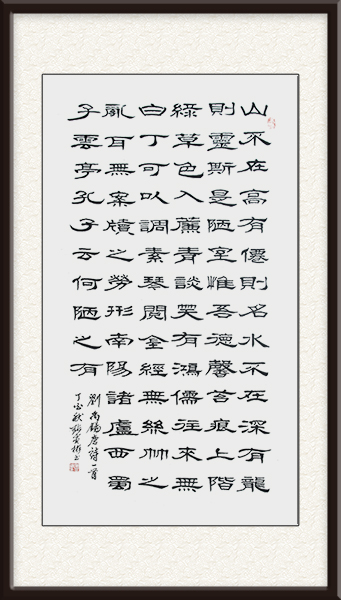 山不在高有僊則名水不在深有龍
則靈斯是陋室惟吾德馨苔痕上階
綠草色入簾青談笑有鴻儒往來無
白丁可以調素琴閱金經無絲竹之
亂耳無案牘之勞形南陽諸廬西蜀
子雲亭孔子云何陋之有
劉禹錫唐詩一首
丁亥秋